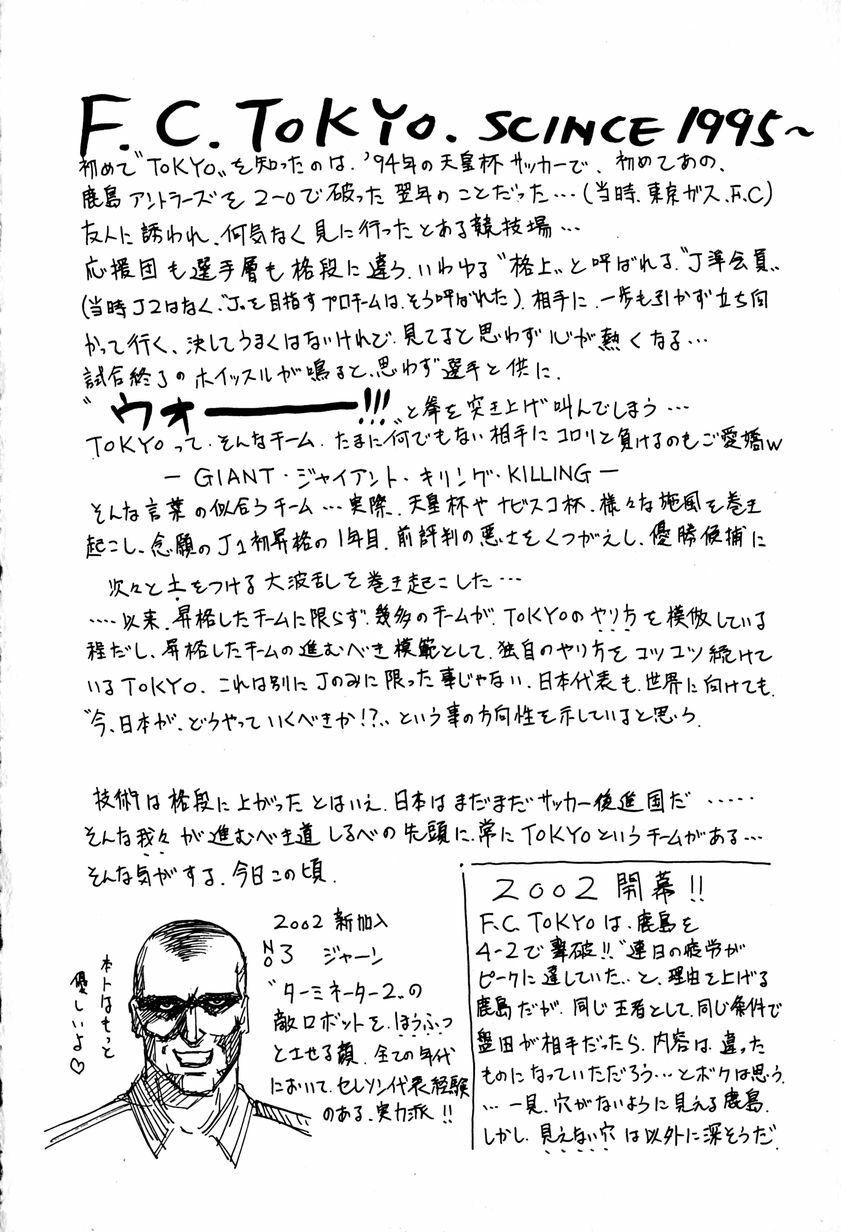 F.C.TOKYO. SCINCE 1995~
初めて"TOKYO"を知ったのは、'94年の天皇杯サッカーで、初めてあの、
鹿島アントラーズを2-0で破った翌年のことだった…(当時、東京ガス、F.C)
友人に誘われ、何気なく見に行ったとある競技場…
応援団も選手層も格段に違う、いわゆる"格上"と呼ばれる、"J準会員"
(当時J2はなく、"J"を目指すプロチームは、そう呼ばれた)、相手に、一歩も引かず立ち向
かって行く、決してうまくはないけれど、見てると思わず心が熱くなる…
試合終了のホイッスルが鳴ると、思わず選手と供に、
"ウォーーー!!!"と拳を突き上げ叫んでしまう…
TOKYOって、そんなチーム、たまに何でもない相手にコロリと負けるのもご愛嬌w
ーGIANT・ジャイアント・キリング・KILLINGー
そんな言葉の似合うチーム…実際、天皇杯やナビスコ杯、様々な旋風を巻き
起こし、念願のJ1初昇格の1年目、前評判の悪さをくつがえし、優勝候補に
次々と土をつける大波乱を巻き起こした…
‥‥以来、昇格したチームに限らず、幾多のチームが、TOKYOのやり方を模倣している
程だし、昇格したチームの進むべき模範として、独自のやり方をコツコツ続けて
いるTOKYO、これは別にJのみに限った事じゃない、日本代表も、世界に向けても、
"今、日本が、どうやっていくべきか!?"という事の方向性を示していると思う、
技術は格段に上がったとはいえ、日本はまだまだサッカー後進国だ‥‥‥
そんな我々が進むべき道しるべの先頭に、常にTOKYOというチームがある…
そんな気がする、今日この頃、
2002 新加入
No3 ジャーン
"ターミネーター2"の
敵ロボットを、ほうふつ
とさせる顔、全ての年代
において、セレソン代表経験
のある、実力派!!
ホントはもっと
優しいよ♡
2002 開幕!!
F.C.TOKYOは、鹿島を
4-2で撃破!!"連日の疲労が
ピークに達していた"と、理由を上げる
鹿島だが、同じ王者として、同じ条件で
磐田が相手だったら、内容は、違った
ものになっていただろう…とボクは思う、
…一見、穴がないように見える鹿島、
しかし、見えない穴は以外に深そうだ、